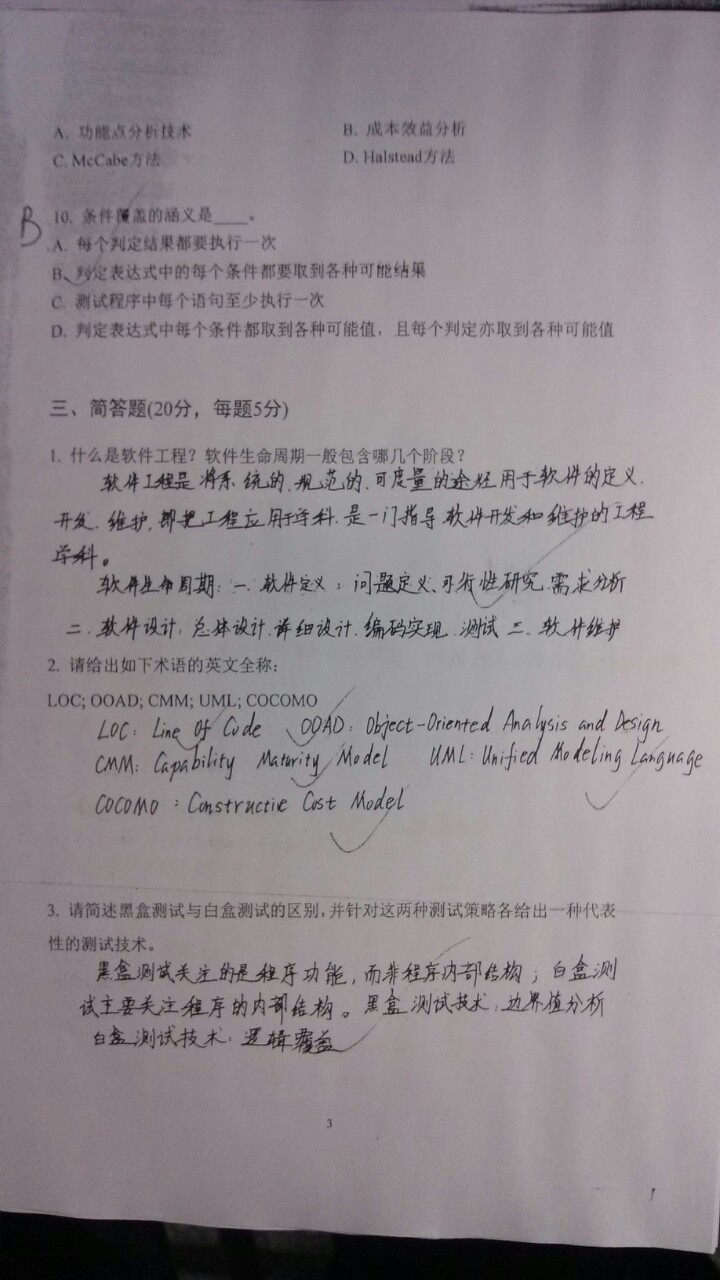 A. 功能点分析技术 B. 成本效益分析
C. McCabe方法 D. Halstead方法
B 10. 条件覆盖的涵义是____。
A. 每个判定结果都要执行一次
B. 判定表达式中的每个条件都要取到各种可能结果
C. 测试程序中每个语句至少执行一次
D. 判定表达式中每个条件都取到各种可能值，且每个判定亦取到各种可能值
三、简答题(20分，每题5分)
1. 什么是软件工程？软件生命周期一般包含哪几个阶段？
软件工程是将系统的、规范的、可度量的途径用于软件的定义、
开发、维护，即把工程应用于学科，是一门指导软件开发和维护的工程
学科。
软件生命周期：一、软件定义：问题定义、可行性研究、需求分析
二、软件设计：总体设计、详细设计、编码实现、测试 三、软件维护
2. 请给出如下术语的英文全称：
LOC; OOAD; CMM; UML; COCOMO
LOC: Line Of Code OOAD: Object-Oriented Analysis and Design
CMM: Capability Maturity Model UML: Unified Modeling Language
COCOMO: Constructie Cost Model
3. 请简述黑盒测试与白盒测试的区别，并针对这两种测试策略各给出一种代表
性的测试技术。
黑盒测试关注的是程序功能，而非程序内部结构；白盒测
试主要关注程序的内部结构。黑盒测试技术：边界值分析
白盒测试技术：逻辑覆盖
3